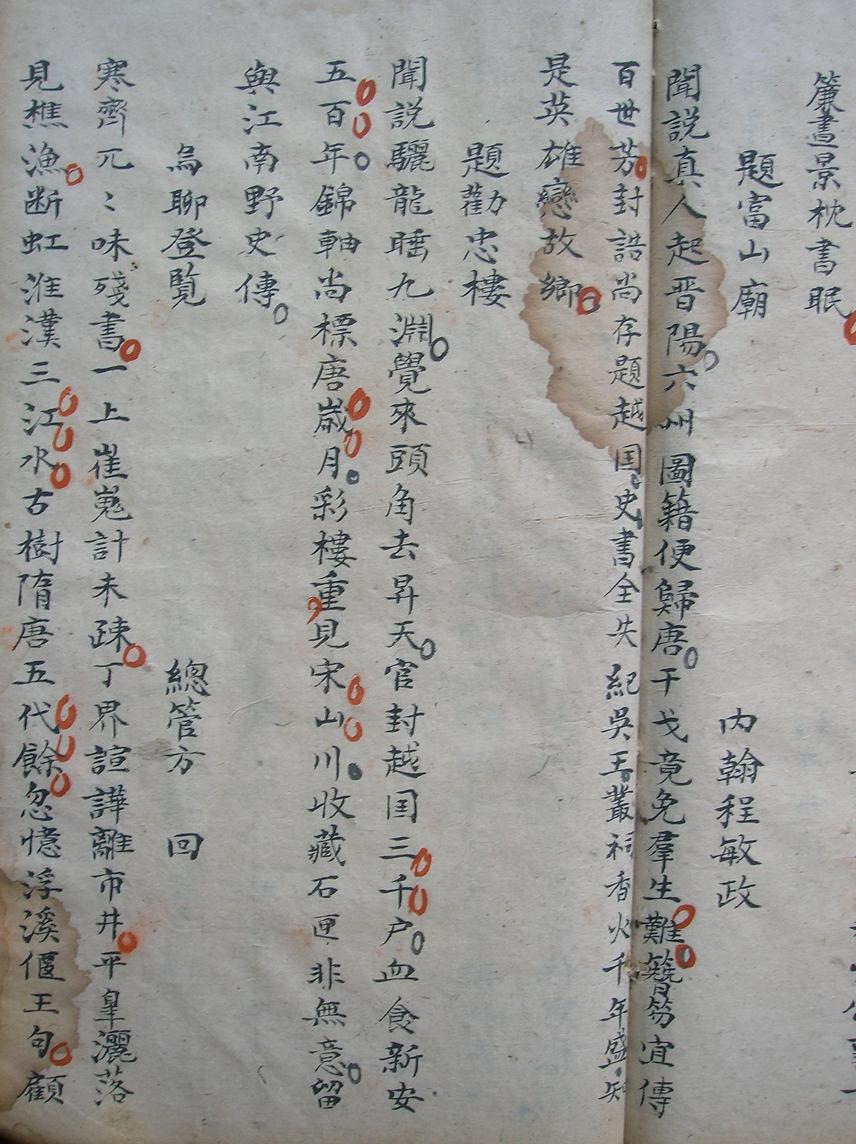 簾晝景枕書眠
題富山廟
內翰程敏政
聞說真人起晋陽六州圖籍便歸唐干戈竟免羣生難簪笏宜傳
百世芳封誥尚存題越国史書全失紀吳王叢祠香火千年盛知
是英雄戀故鄉
題勸忠樓
聞說驪龍睡九淵覺來頭角去昇天官封越国三千户血食新安
五百年錦軸尚標唐歲月彩樓重見宋山川收藏石匣非無意留
與江南野史傳
烏聊登覽
總管方回
寒齊兀〻味殘書一上崔嵬計未疎丁界諠譁離市井平臯灑落
見樵漁断虹淮漢三江水古樹隋唐五代餘忽憶浮溪偃王句顧